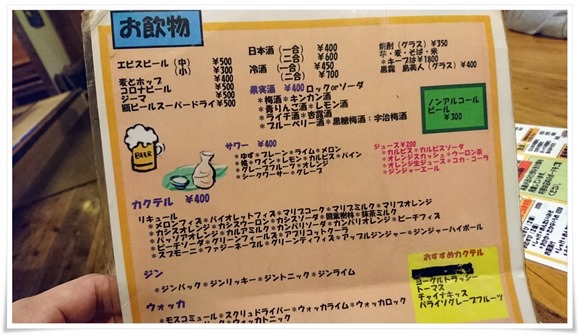 お飲物
エビスビール（中） ¥500
（小） ¥300
麦とホップ ¥400
コロナビール ¥500
ジーマ ¥500
瓶ビールスーパードライ ¥500
日本酒（一合） ¥400
（二合） ¥600
冷酒（一合） ¥450
（二合） ¥700
果実酒 ¥400 ロックorソーダ
＊梅酒＊キンカン酒
＊青りんご酒＊レモン酒
＊ライチ酒＊杏露酒
＊ブルーベリー酒＊黒糖梅酒・宇治梅酒
焼酎（グラス）¥350
芋・麦・そば・米
＊キープは¥1800
黒霧 島美人（グラス）¥400
ノンアルコール
ビール
¥300
BEER
サワー ¥400
＊ゆず＊プレーン＊ライム＊メロン
＊桃＊ワイン＊レモン＊カルピス＊パイン
＊グレープフルーツ＊オレンジ
＊シークワーサー＊グレープ
ジュース¥200
＊カルピス＊カルピスソーダ
＊オレンジスカッシュ＊ウーロン茶
＊オレンジ生ジュース＊コカ・コーラ
＊ジンジャーエール
カクテル ¥400
リキュール
＊メロンフィズ＊バイオレットフィズ＊マリブコーク＊マリブミルク＊マリブオレンジ
＊カシスオレンジ＊カシスウーロン＊カシスソーダ＊照葉樹林＊抹茶ミルク
＊パッソア＊カルアミルク＊カンパリソーダ＊カンパリオレンジ＊ピーチフィズ
＊ピーチソーダ＊グリーンフィールズ＊アプリコットクーラ
＊スプモーニ＊ファジーネーブル＊グリーンティフィズ＊アップルジンジャー＊ジンジャーハイボール
ジン
＊ジンバック＊ジンリッキー＊ジントニック＊ジンライム
ウォッカ
＊モスコミュール＊スクリュドライバー＊ウォッカライム＊ウォッカロック
＊ウォッカトニック
おすすめカクテル
ヨーグルトラッシー
トーマス
チャイナキッス
パライソグレープフルーツ